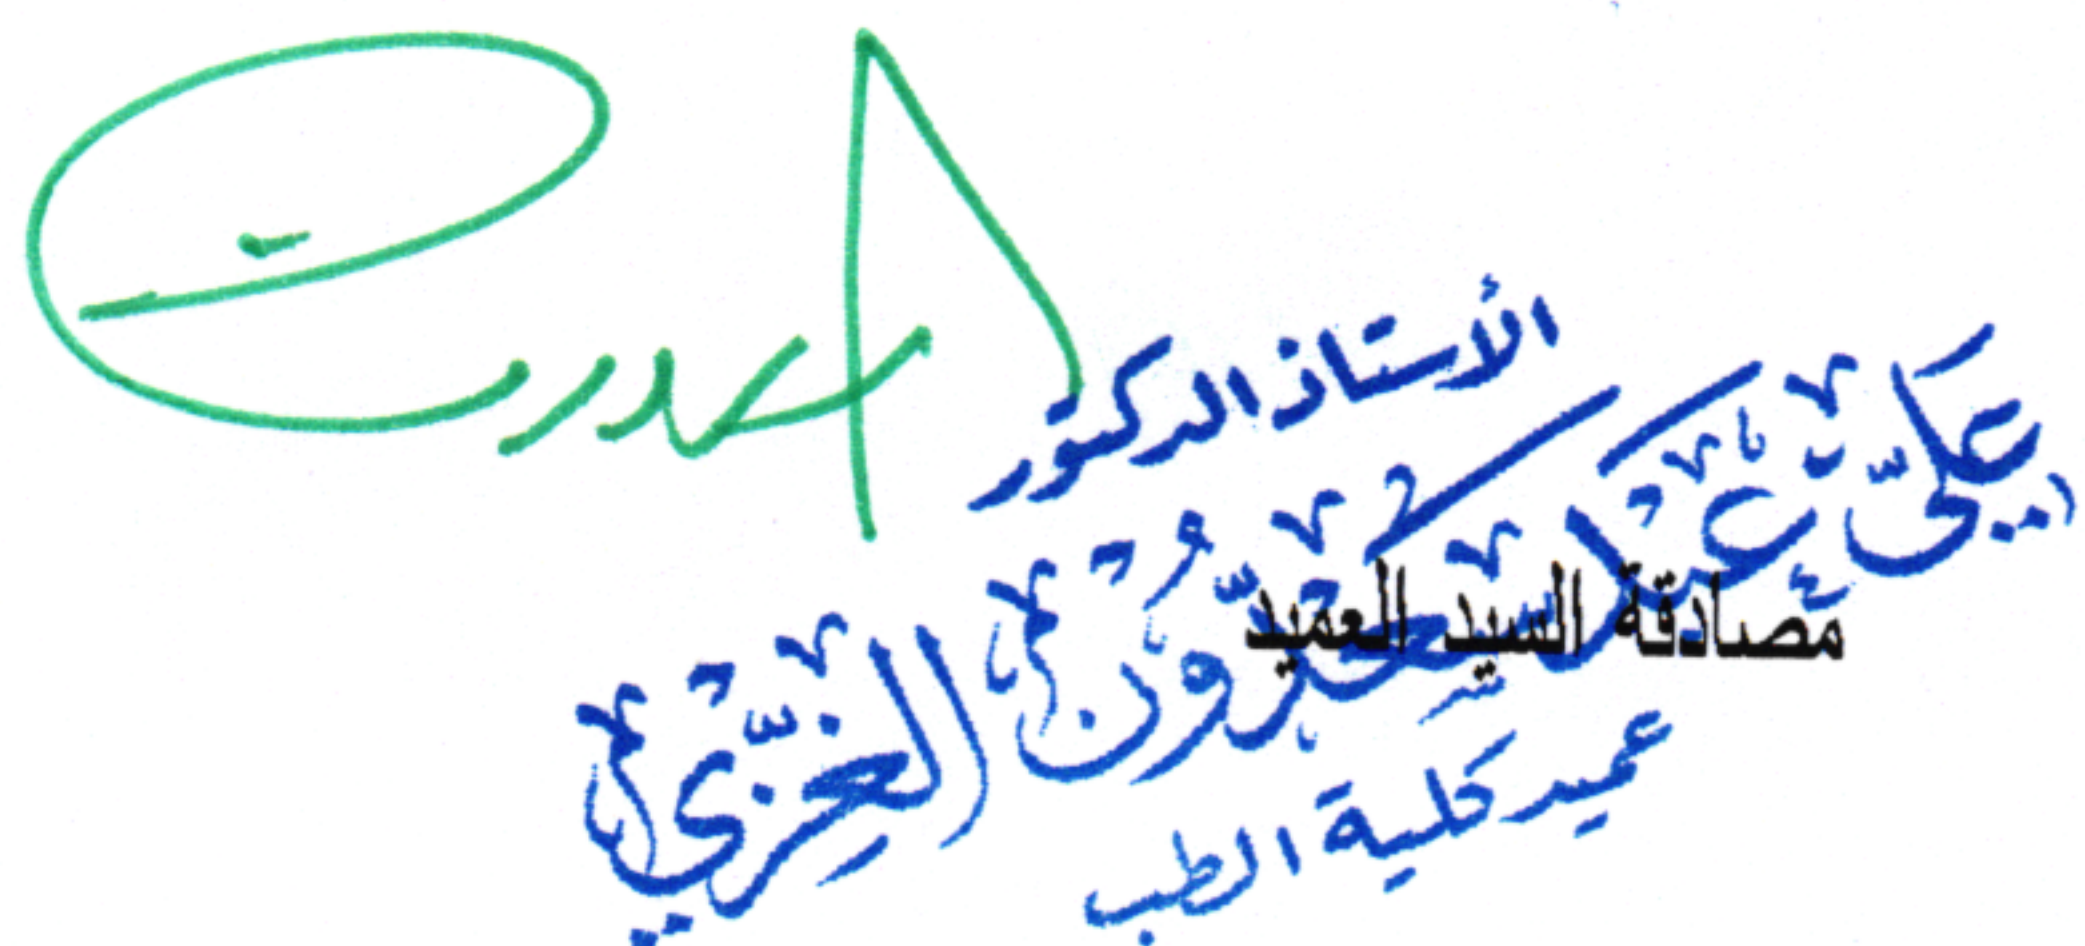 الأستاذ الدكتور
علي عبد سعدون الغزي
مصادقة السيد العميد
عميد كلية الطب